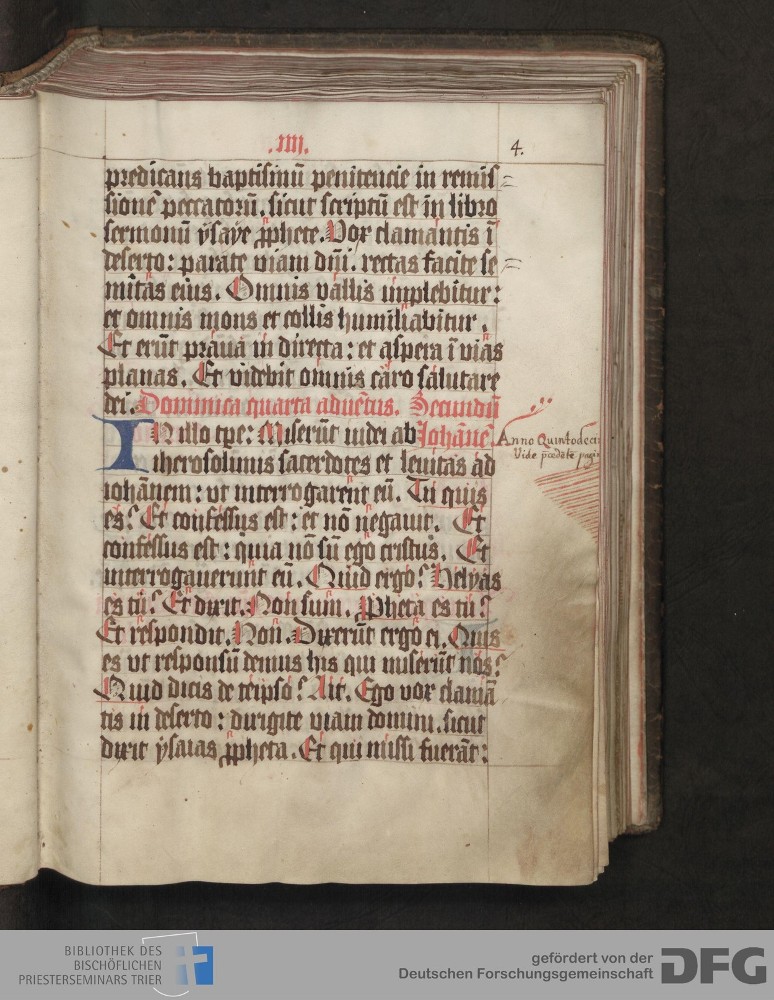 .IIII.
4.
predicans baptismū penitencie in remis=
sionē peccatorū. sicut scriptū est in libro
sermonū ysaye ꝓphete. Vox clamantis ī
deserto: parate viam dn̄i. rectas facite se=
mitas eius. Omnis vallis implebitur:
et omnis mons et collis humiliabitur.
Et erūt praua in directa: et aspera ī vias
planas. Et videbit omnis caro salutare
dei. Dominica quarta aduētus. Secundū
IN illo tpe: Miserūt iudei ab Johānē.
iherosolimis sacerdotes et leuitas ad
iohannem: vt interrogarent eū. Tu quis
es? Et confessus est: et nō negauit. Et
confessus est: quia nō sū ego cristus. Et
interrogauerunt eū. Quid ergo? Helyas
es tu? Et dixit. Non sum. Ꝓpheta es tu?
Et respondit. Non. Dixerūt ergo ei. Quis
es vt responsū demus his qui miserūt nos?
Quid dicis de teipso? Ait. Ego vox clamā
tis in deserto: dirigite viam domini. sicut
dixit ysaias ꝓpheta. Et qui missi fuerāt:
Anno Quintodeci
Vide
BIBLIOTHEK DES
BISCHÖFLICHEN
PRIESTERSEMINARS TRIER
gefördert von der
Deutschen Forschungsgemeinschaft
DFG